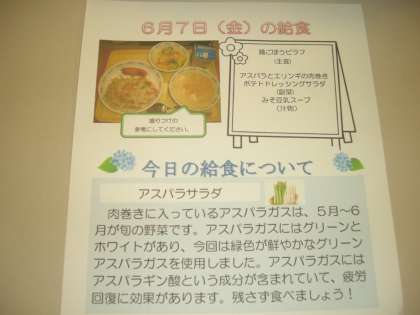 6月7日（金）の給食
鶏ごぼうピラフ
（主食）
アスパラとエリンギの肉巻き
ポテトドレッシングサラダ
（副菜）
みそ豆乳スープ
（汁物）
盛りつけの
参考にしてください。
今日の給食について
アスパラサラダ
肉巻きに入っているアスパラガスは、5月～6
月が旬の野菜です。アスパラガスにはグリーンと
ホワイトがあり、今回は緑色が鮮やかなグリーン
アスパラガスを使用しました。アスパラガスには
アスパラギン酸という成分が含まれていて、疲労
回復に効果があります。残さず食べましょう！